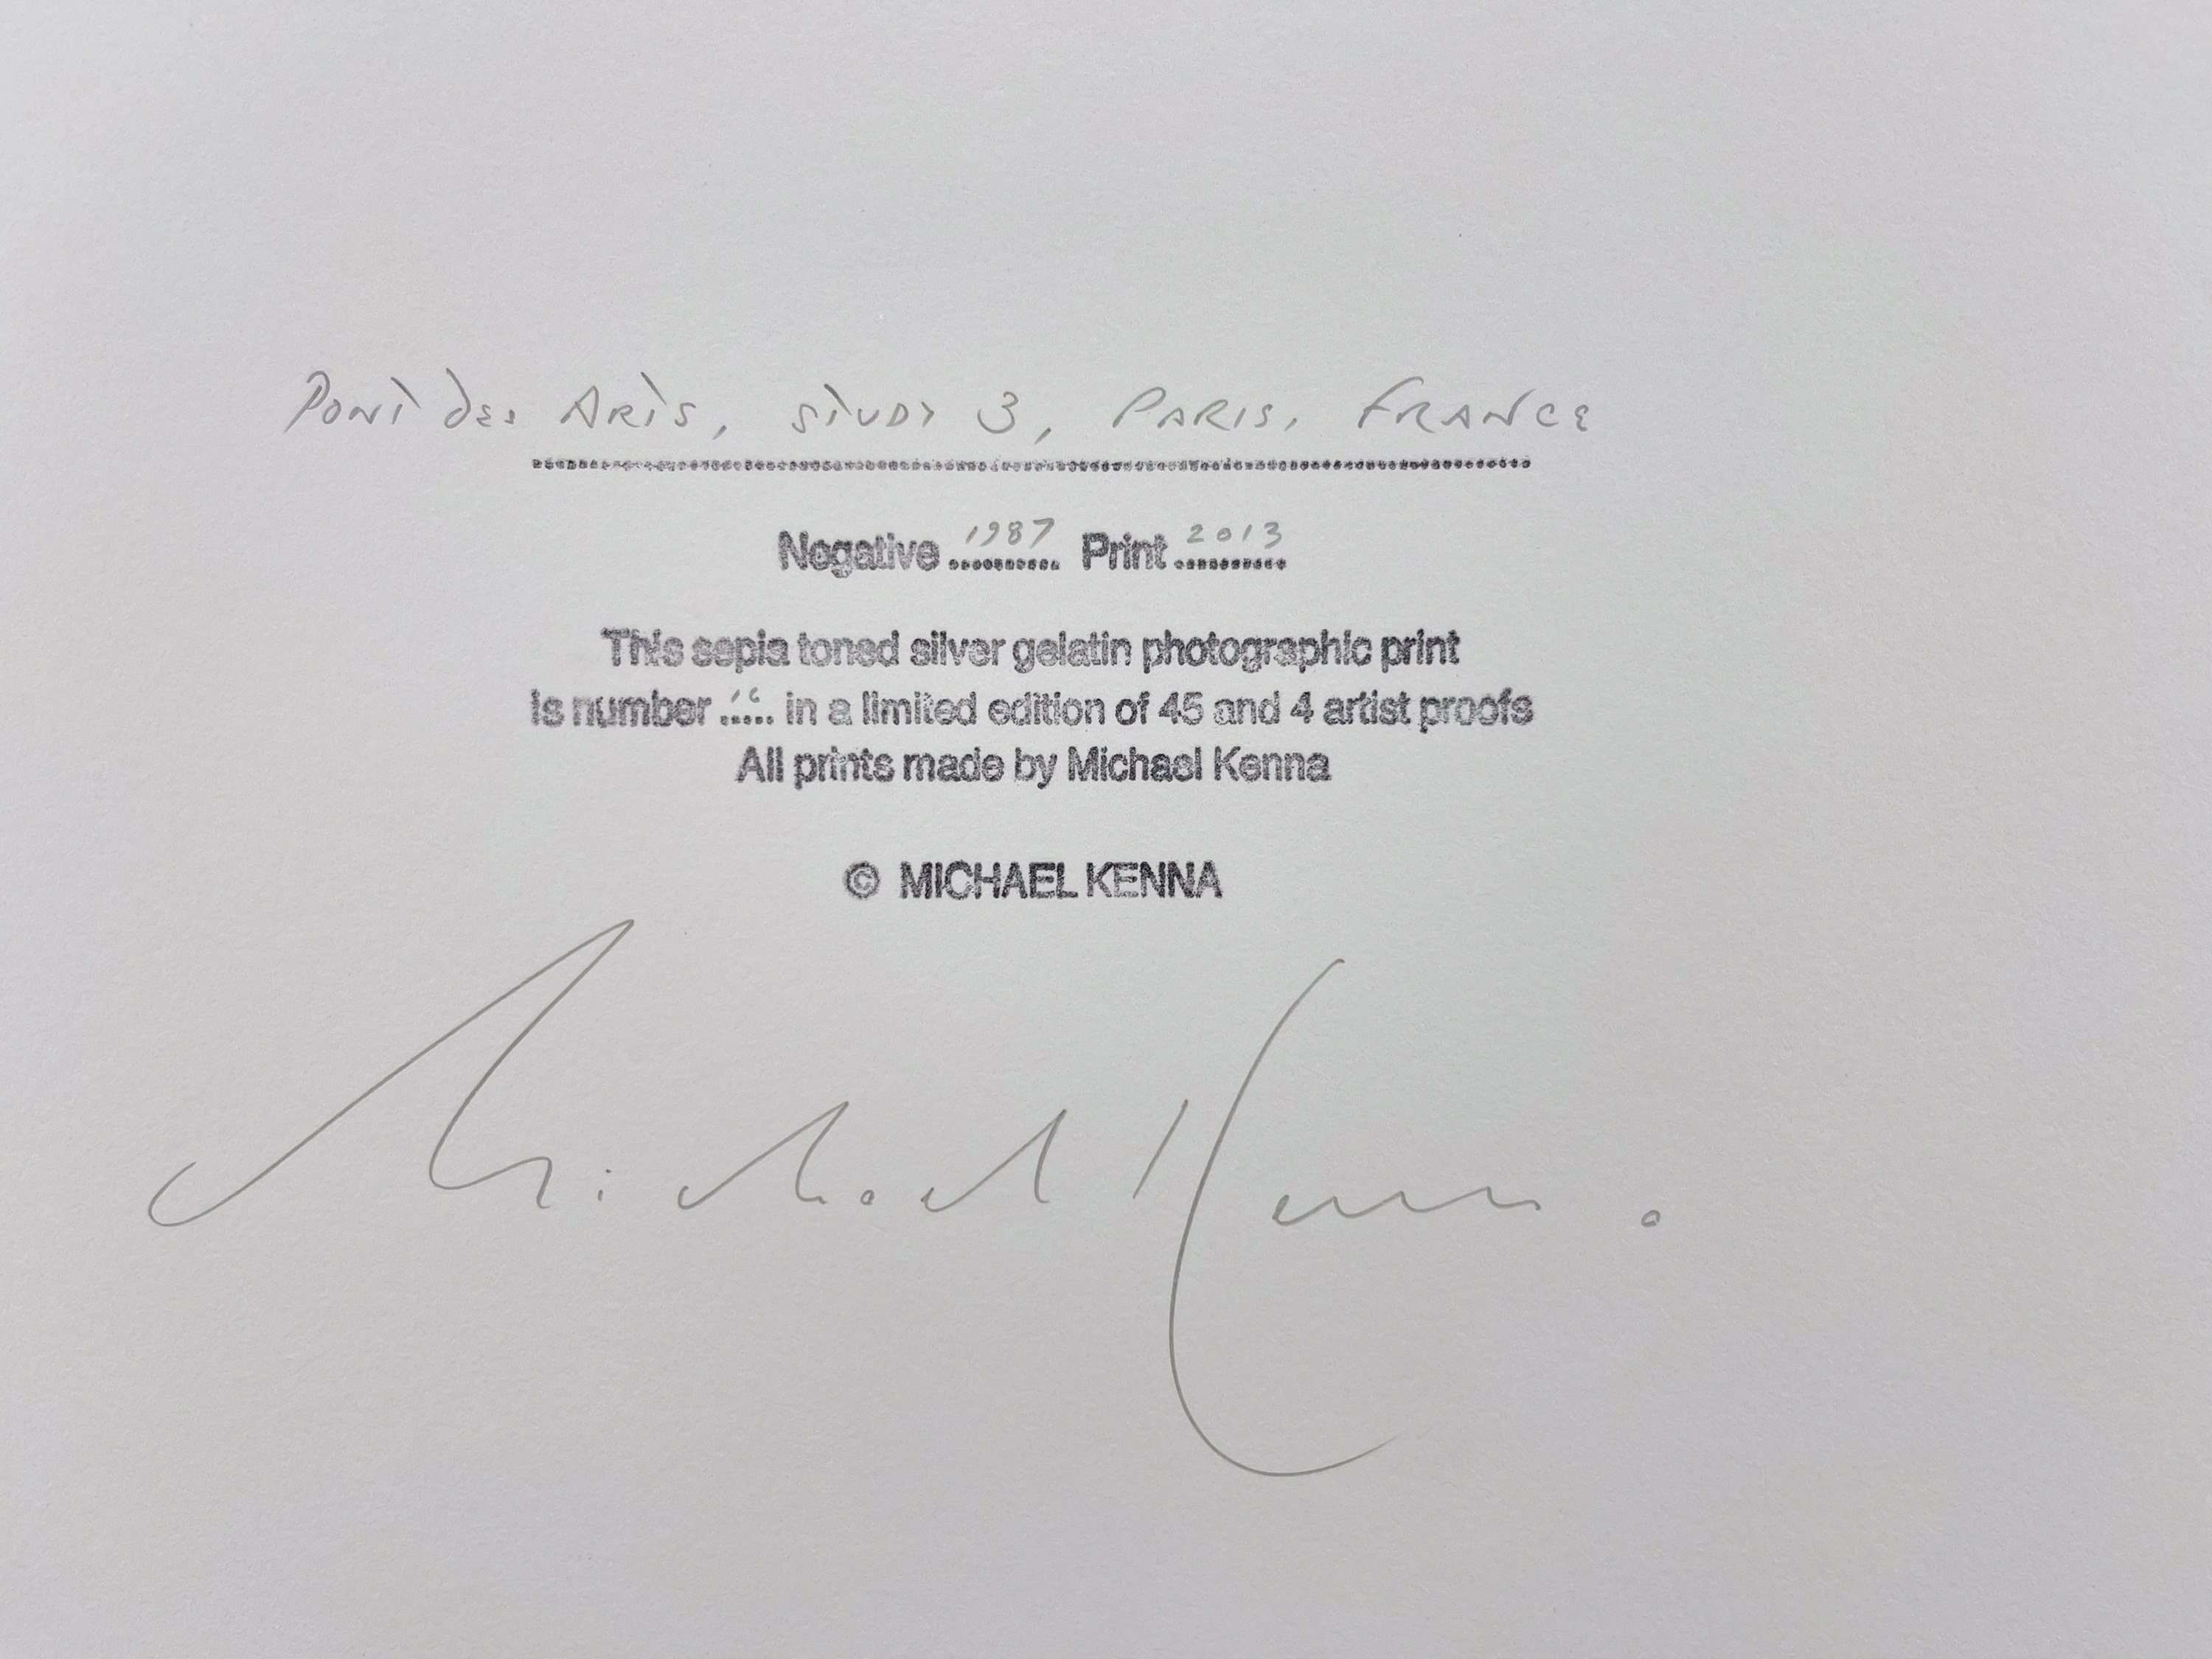 Pont des Arts, Study 3, Paris, France
Negative 1987 Print 2013
This sepia toned silver gelatin photographic print
is number 16 in a limited edition of 45 and 4 artist proofs
All prints made by Michael Kenna
© MICHAEL KENNA
Michael Kenna.